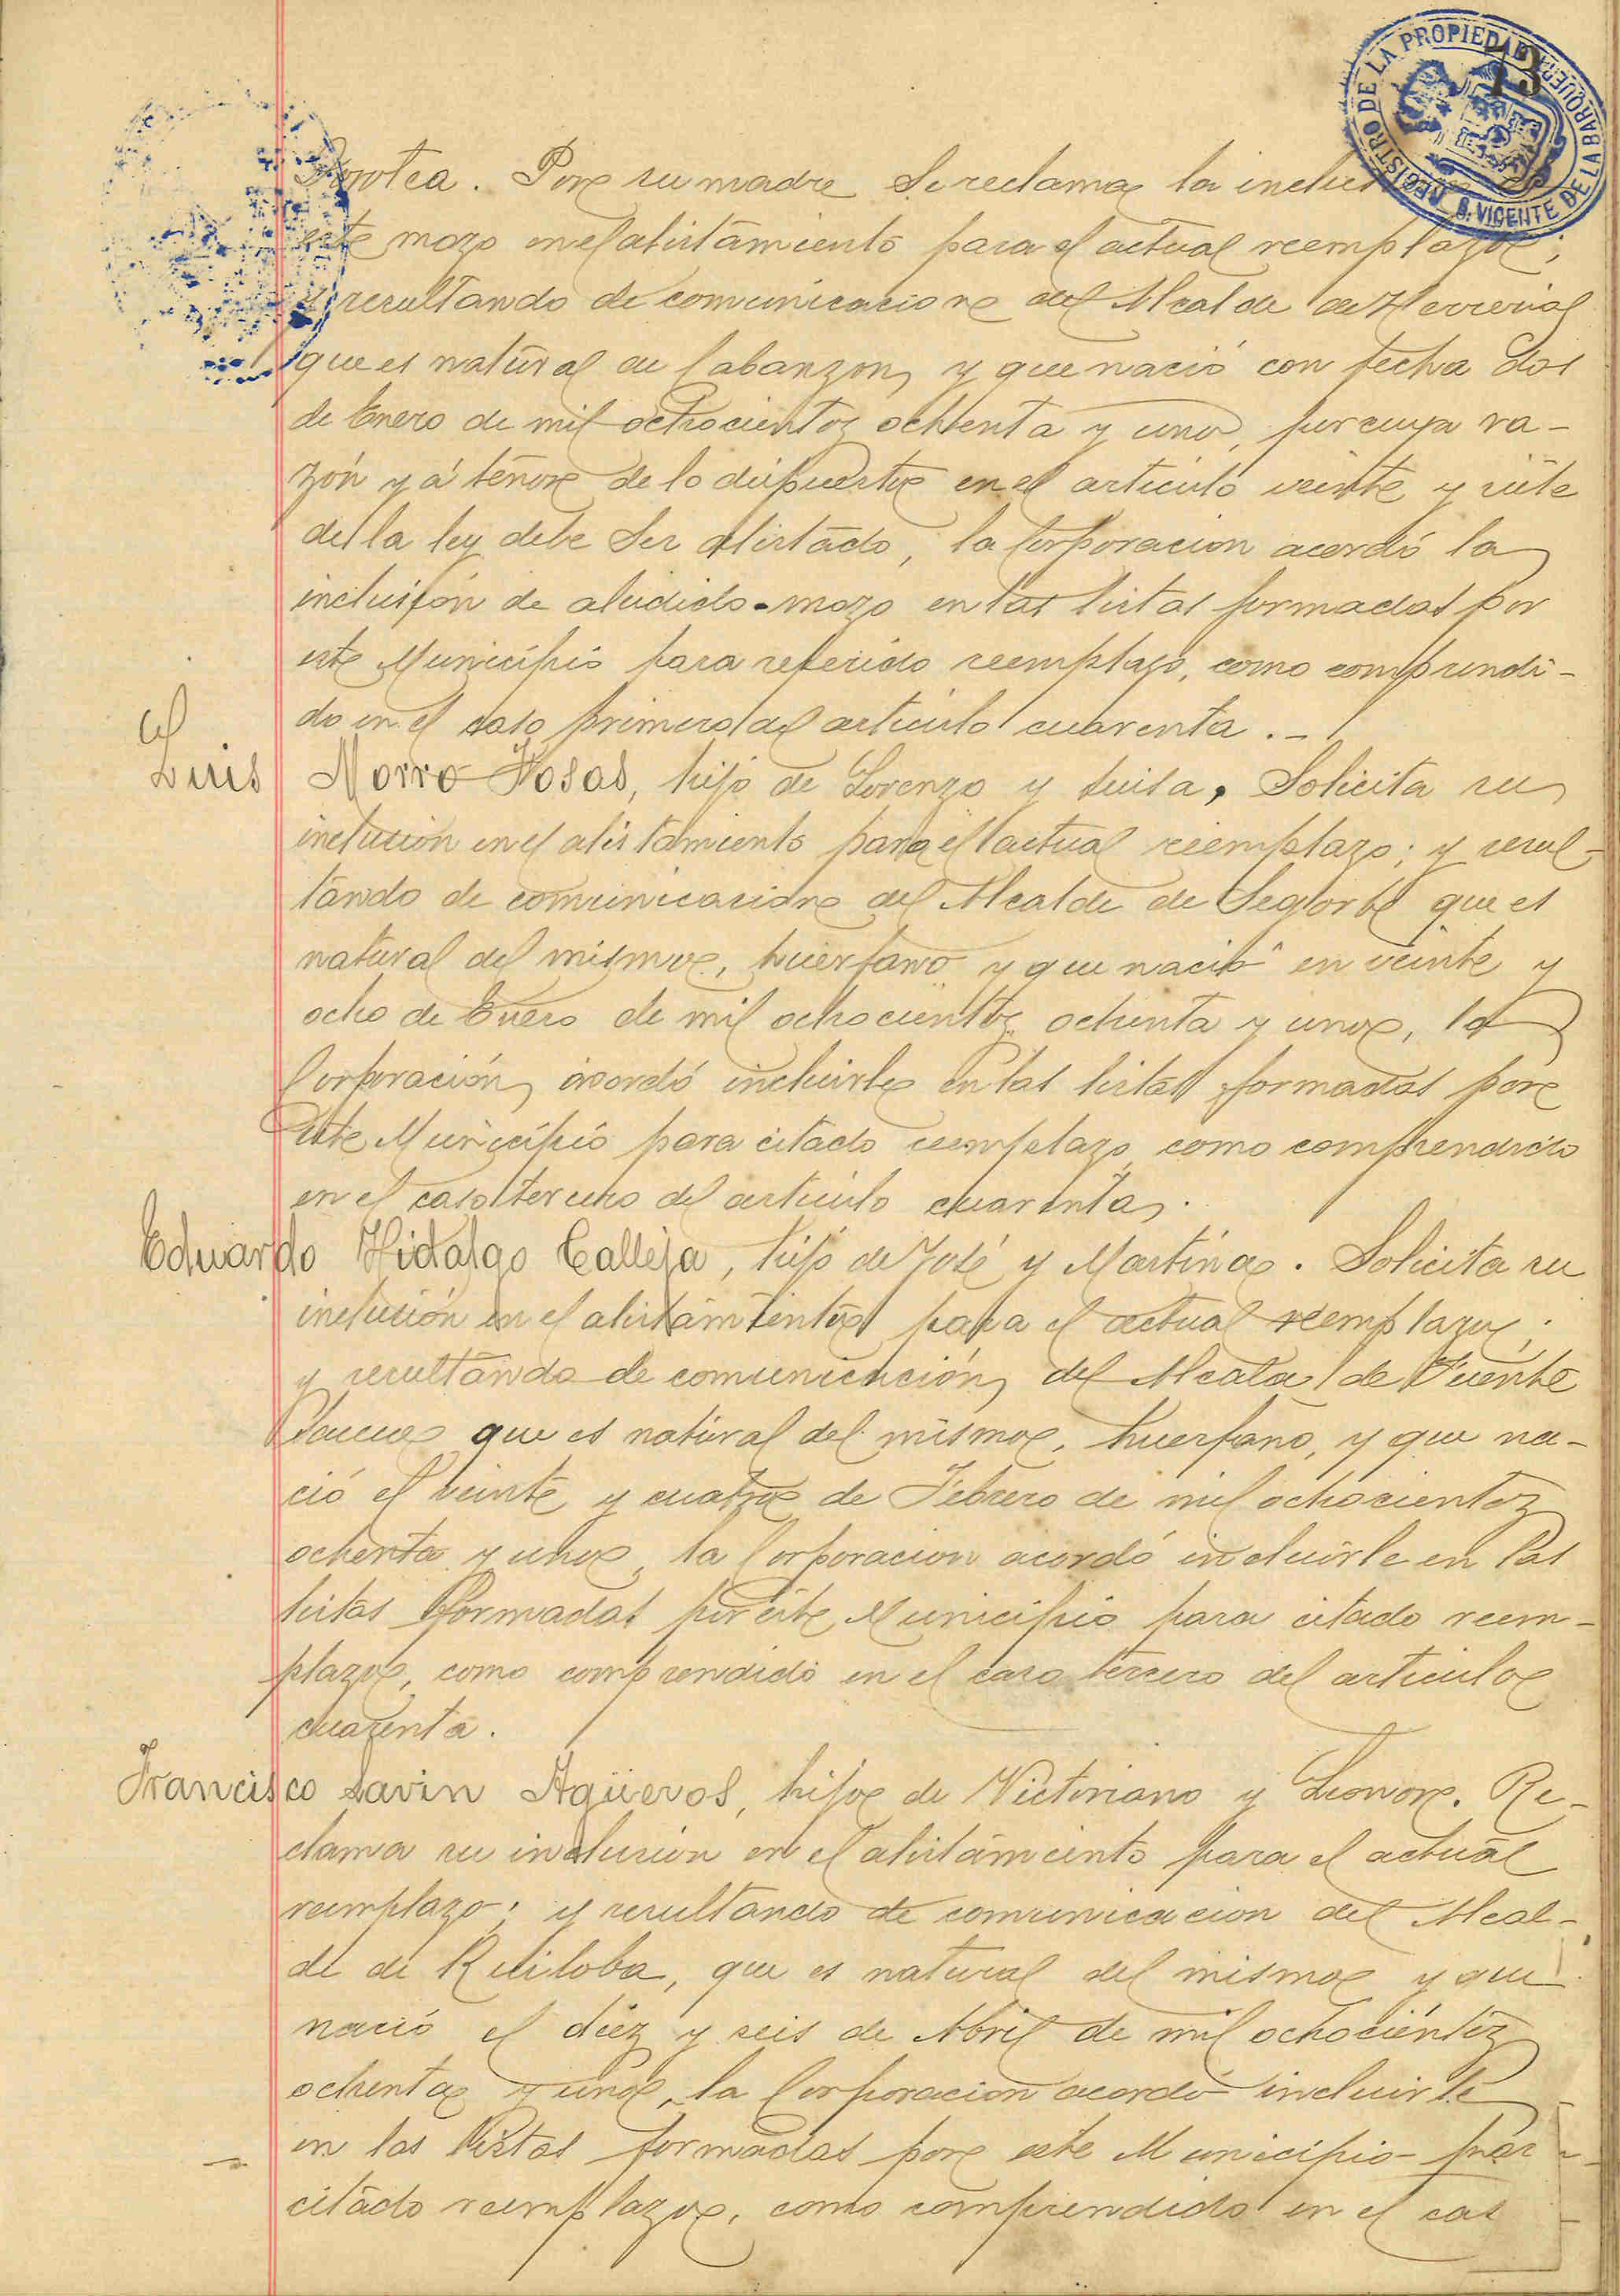 73
REGISTRO DE LA PROPIEDAD S. VICENTE DE LA BARQUERA
Dorotea. Por su madre se reclama la
este mozo en el alistamiento para el actual reemplazo;
y resultando de comunicacion del Alcalde de Herrerias
que es natural de Cabanzon, y que nació con fecha dos
de Enero de mil ochocientos ochenta y uno, por cuya ra-
zón y á tenor de lo dispuesto en el articulo veinte y siete
de la ley debe ser alistado, la Corporacion acordó la
inclusión de aludido mozo en las listas formadas por
este Municipio para referido reemplazo, como comprendi-
do en el caso primero del articulo cuarenta.-
Luis Morro Josas, hijo de Lorenzo y Luisa, Solicita su
inclusión en el alistamiento para el actual reemplazo; y resul-
tando de comunicacion del Alcalde de Segorbe que es
natural del mismo, huerfano y que nació en veinte y
ocho de Enero de mil ochocientos ochenta y uno, la
Corporación, acordó incluirle en las listas formadas por
este Municipio para citado reemplazo como comprendido
en el caso tercero del articulo cuarenta.
Eduardo Hidalgo Calleja, hijo de José y Martina. Solicita su
inclusión en el alistamiento para el actual reemplazo;
y resultando de comunicación, del Alcalde de Puente
que es natural del mismo, huerfano, y que na-
ció el veinte y cuatro de Febrero de mil ochocientos
ochenta y uno, la Corporacion acordó incluirle en las
listas formadas por este Municipio para citado reem-
plazo, como comprendido en el caso tercero del articulo
cuarenta.
Francisco Lavin Agüeros, hijo de Victoriano y Leonor. Re-
clama su inclusión en el alistamiento para el actual
reemplazo; y resultando de comunicacion del Alcal-
de de Ruiloba, que es natural del mismo y que
nació el diez y seis de Abril de mil ochocientos
ochenta y uno, la Corporacion acordó incluirle
en las listas formadas por este Municipio para
citado reemplazo, como comprendido en el cas